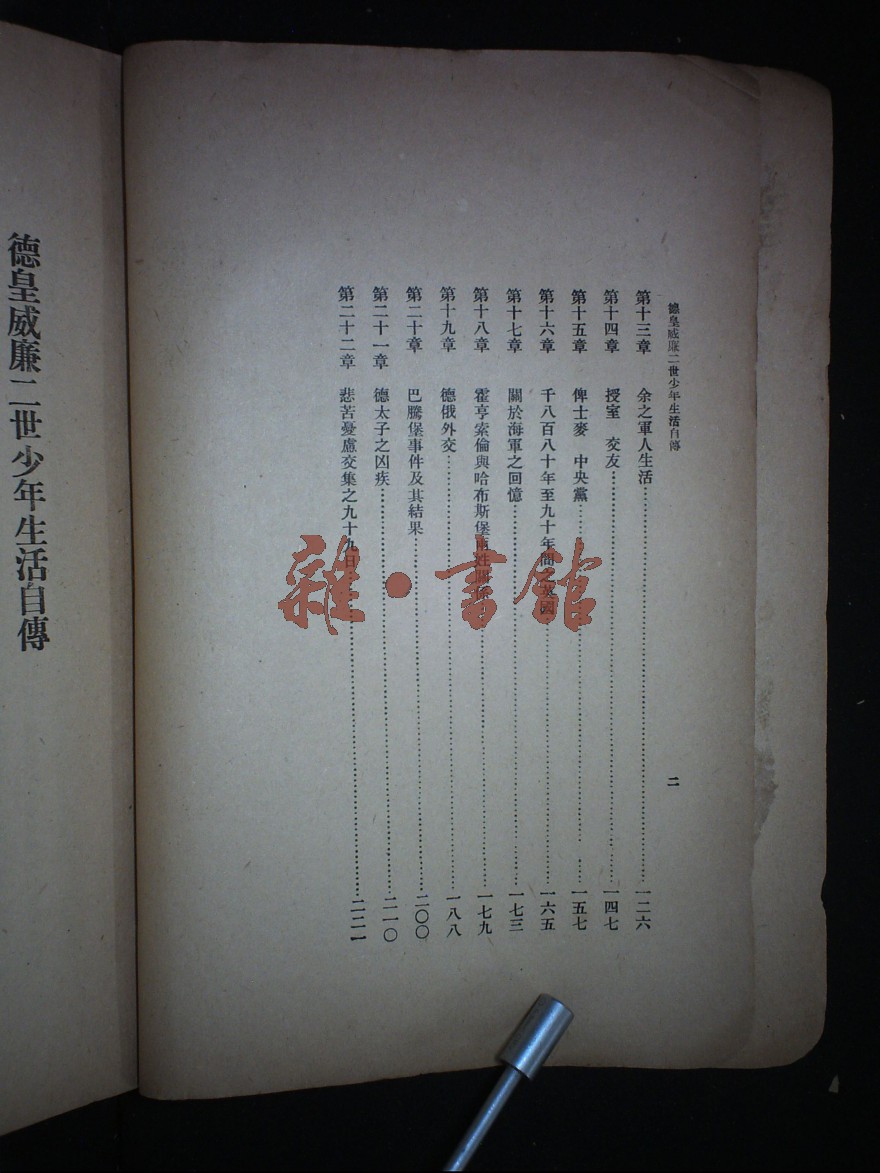 德皇威廉二世少年生活自傳
二
第十三章　余之軍人生活……一二六
第十四章　授室　交友……一四七
第十五章　俾士麥　中央黨……一五七
第十六章　千八百八十年至九十年間之英國……一六五
第十七章　關於海軍之回憶……一七三
第十八章　霍亨索倫與哈布斯堡兩姓關係……一七九
第十九章　德俄外交……一八八
第二十章　巴騰堡事件及其結果……二〇〇
第二十一章　德太子之凶疾……二一〇
第二十二章　悲苦憂慮交集之九十九日……二二一
德皇威廉二世少年生活自傳
雜·書館